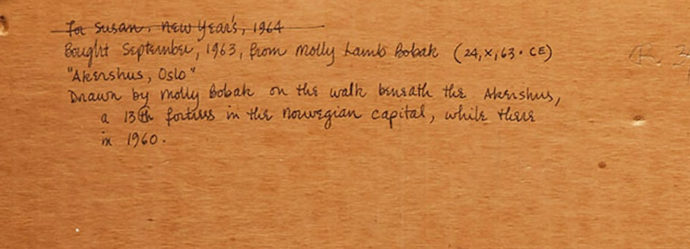 For Susan, New Year's, 1964
Bought September, 1963, from Molly Lamb Bobak (24,X,63. CE)
"Akershus, Oslo"
Drawn by Molly Bobak on the walk beneath the Akershus,
a 13th fortress in the Norwegian capital, while there
in 1960.